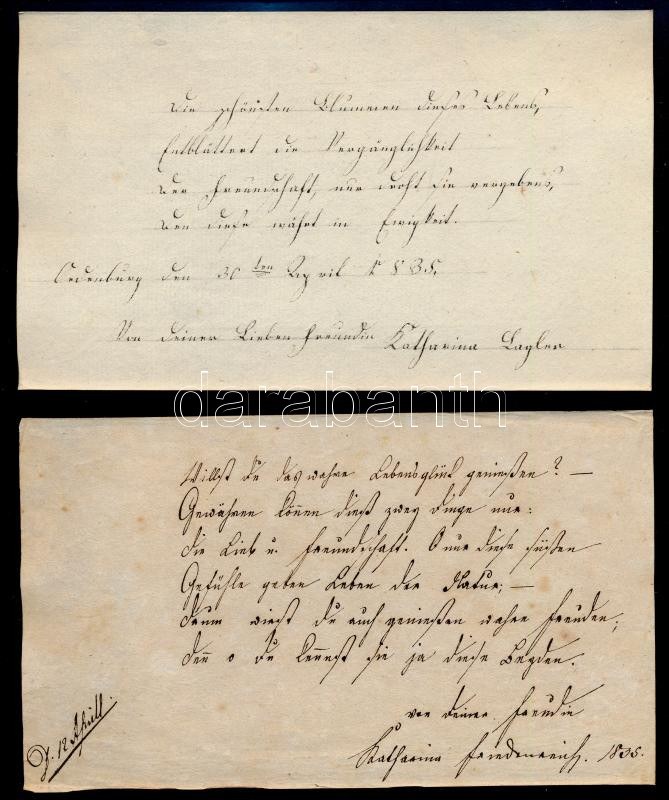 Die schönsten Blummen dieses Lebens,
Entblättert die Vergänglichkeit
Der Freundschaft, nur droht sie vergebens,
Den diese währt in Ewigkeit.
Oedenburg den 30ten April 1835.
Von deiner Lieben Freundin Katharina Lagler
darabanth
Willst du das wahre Lebensglück genießen? —
Gewähren können dieß zwey Dinge nur:
die Lieb u. Freundschaft. O nur diese süßen
Gefühle geben Leben der Natur; —
drum wirst du auch genießen wahre Freuden;
den o du kennst sie ja diese Beyden.
von deiner Freudin
Katharina Friedenreich. 1835.
12 April